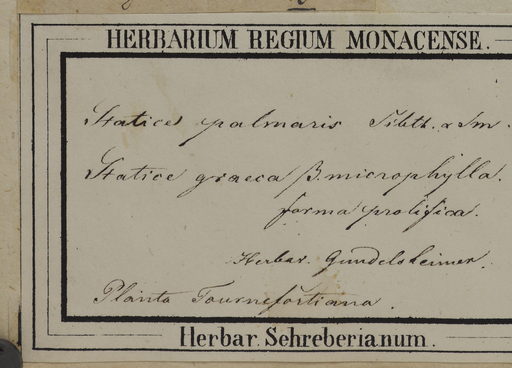 HERBARIUM REGIUM MONACENSE.
Statice palmaris Sibth. & Sm.
Statice graeca β. microphylla.
forma prolifica.
Herbar. Gundelsheimer.
Planta Tournefortiana.
Herbar. Schreberianum.